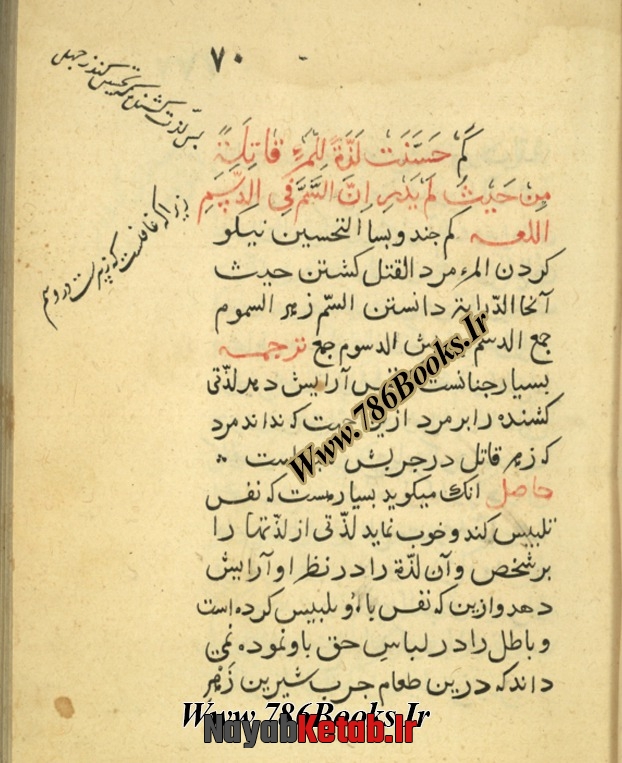 ۷۰
بس لذت کشنده که تحسین کند ز جهل
زیرا که غافلست که زهرست در دسم
كَمْ حَسَّنَتْ لَذَّةً لِلْمَرْءِ قَاتِلَةً
مِنْ حَيْثُ لَمْ يَدْرِ اِنَّ السَّمَّ فِي الدَّسَمِ
اللغه کم چند و بسا التحسین نیکو
کردن المرء مرد القتل کشتن حیث
آنجا الدّرایة دانستن السّم زهر السموم
جمع الدسم چربش الدسوم جمع ترجمه
بسیار چنانست نفس آرایش دهد لذّتی
کشنده را بر مرد از این که نداند مرد
که زهر قاتل در چربش است
حاصل آنک میگوید بسیارست که نفس
تلبیس کند و خوب نماید لذّتی از لذتها را
بر شخص و آن لذّة را در نظر او آرایش
دهد و ازین که نفس باو تلبیس کرده است
و باطل را در لباسِ حق باو نموده نمی
داند که درین طعام چرب شیرین زَهْرِ
Www.786Books.Ir
Www.786Books.Ir
NayabKetab.Ir